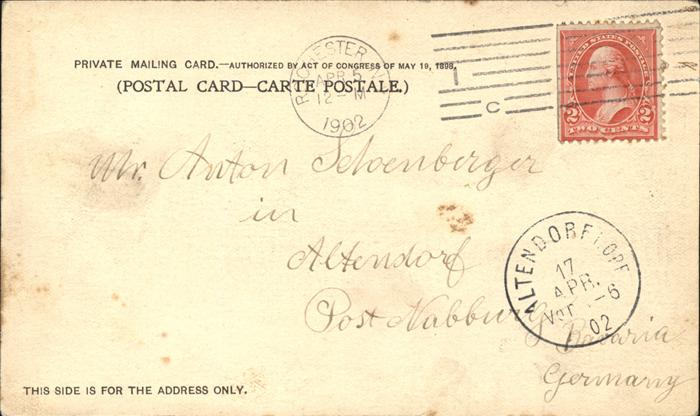 PRIVATE MAILING CARD.—AUTHORIZED BY ACT OF CONGRESS OF MAY 19, 1898.
(POSTAL CARD—CARTE POSTALE.)
ROCHESTER, N.
APR 5
12 – M
1902
C
UNITED STATES POSTAGE
2 2
TWO CENTS
Mr. Anton Schoenberger
in
Altendorf
Post Nabburg
Bavaria
Germany
ALTENDORF I. OPF
17
APR.
Vor – 6
02
THIS SIDE IS FOR THE ADDRESS ONLY.